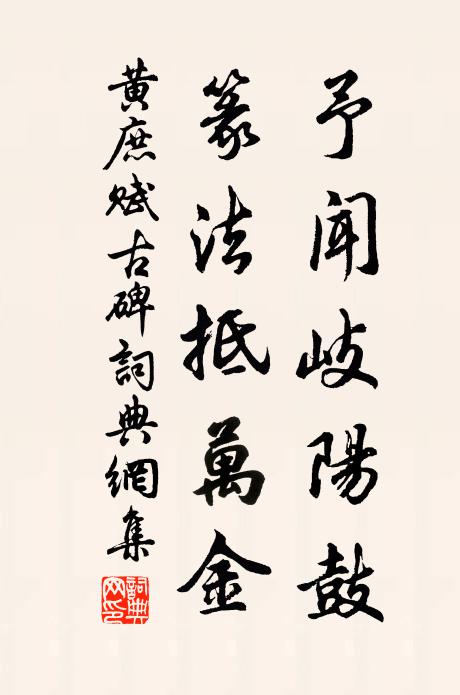 予聞岐陽鼓
篆法抵萬金
黃庶賦古碑詞典網集
詞典網印